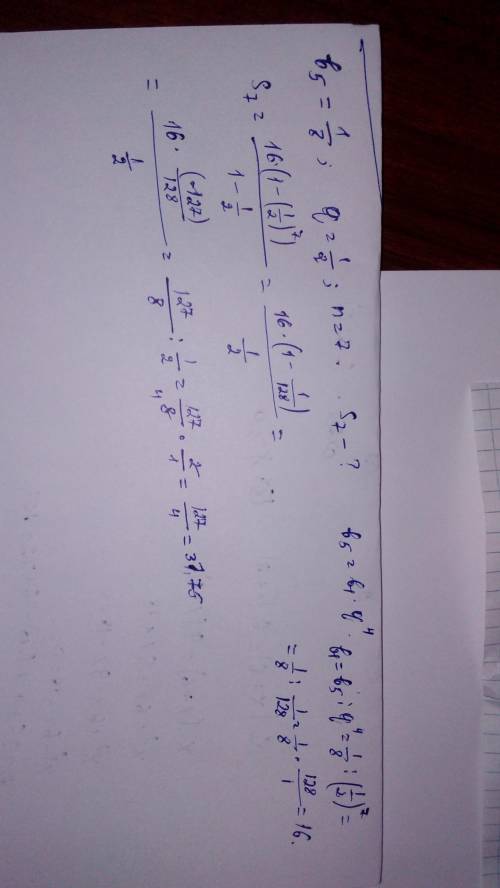 b₅ = 1/8; q = 1/2; n = 7. S₇ - ? b₅ = b₁ · q⁴. b₁ = b₅ : q⁴ = 1/8 : (1/2)⁷ =
= 1/8 : 1/128 = 1/8 · 128/1 = 16.
S₇ = 16·(1-(1/2)⁷) / (1 - 1/2) = 16·(1 - 1/128) / (1/2) =
= 16 · (127/128) / (1/2) = 127/8 : 1/2 = 127/8 · 2/1 = 127/4 = 31,75